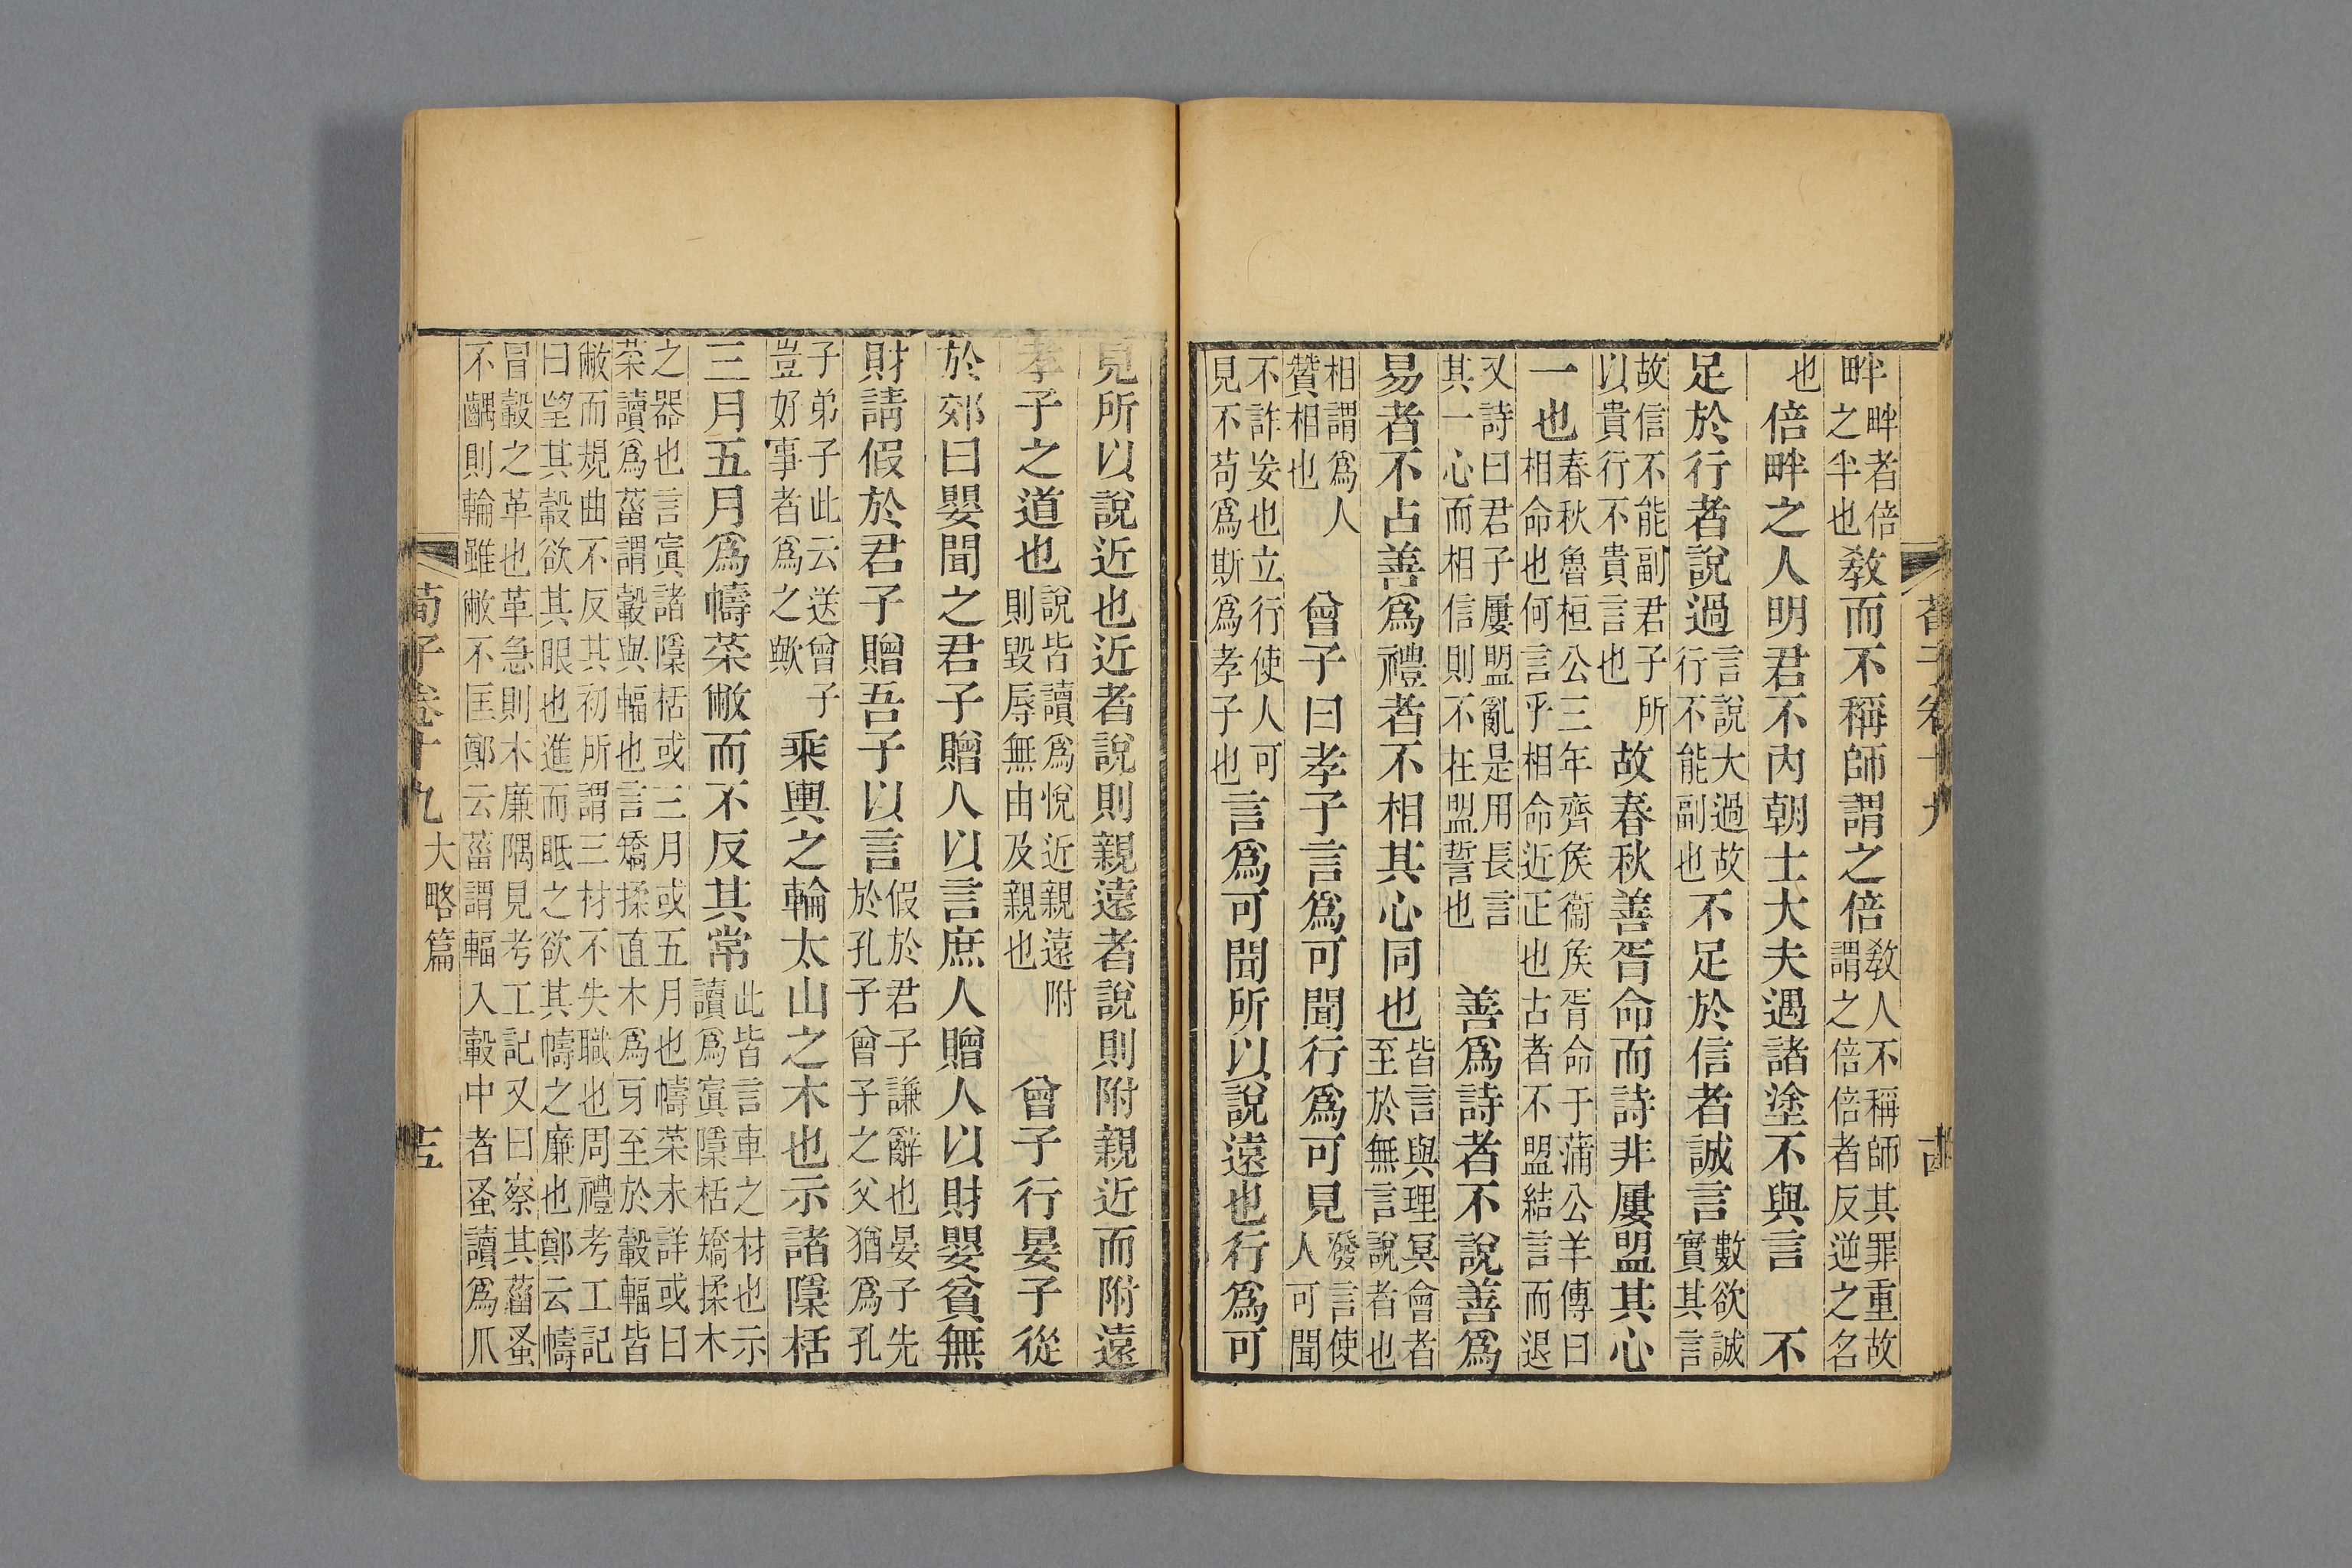 畔畔者倍之半也教而不稱師謂之倍教人不稱師其罪重故謂之倍倍者反逆之名
也倍畔之人明君不內朝士大夫遇諸塗不與言　不
足於行者說過言說大過故行不能副也不足於信者誠言數欲誠實其言
故信不能副君子所以貴行不貴言也故春秋善胥命而詩非屢盟其心
一也春秋魯桓公三年齊矦衞矦胥命于蒲公羊傳曰相命也何言乎相命近正也古者不盟結言而退
又詩曰君子屢盟亂是用長言其一心而相信則不在盟誓也　善爲詩者不說善爲
易者不占善爲禮者不相其心同也皆言與理冥會者至於無言說者也
相謂爲人贊相也　曾子曰孝子言爲可聞行爲可見發言使人可聞
不詐妄也立行使人可見不苟爲斯爲孝子也言爲可聞所以說遠也行爲可
見所以說近也近者說則親遠者說則附親近而附遠
孝子之道也說皆讀爲悅近親遠附則毀辱無由及親也　曾子行晏子從
於郊曰嬰聞之君子贈人以言庶人贈人以財嬰貧無
財請假於君子贈吾子以言假於君子謙辭也晏子先於孔子曾子之父猶爲孔
子弟子此云送曾子豈好事者爲之歟　乘輿之輪太山之木也示諸檃栝
三月五月爲幬菜敝而不反其常此皆言車之材也示讀爲寘檃栝矯揉木
之器也言寘諸檃栝或三月或五月也幬菜未詳或曰菜讀爲菑謂轂與輻也言矯揉直木爲牙至於轂輻皆
敝而規曲不反其初所謂三材不失職也周禮考工記曰望其轂欲其眼也進而眡之欲其幬之廉也鄭云幬
冒轂之革也革急則木廉隅見考工記又曰察其菑蚤不齵則輪雖敝不匡鄭云菑謂輻入轂中者蚤讀爲爪
荀子卷十九　大略篇　十五